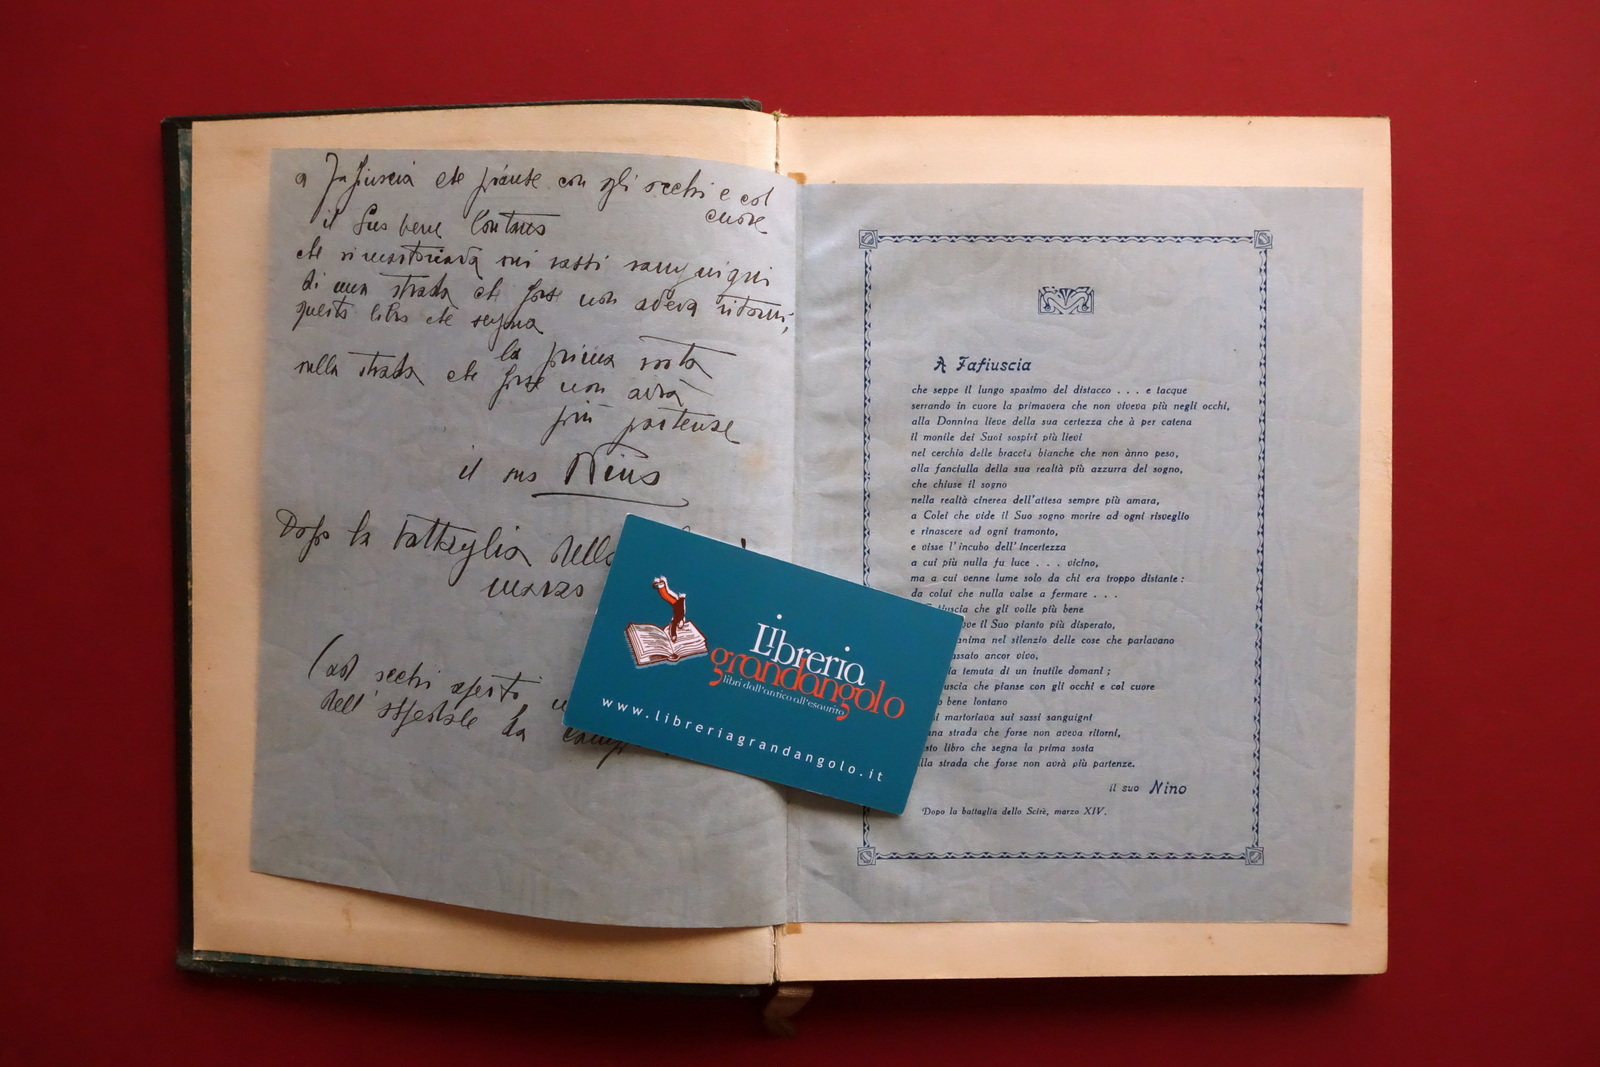 a Fafiuscia che pianse con gli occhi e col
cuore
il suo bene lontano
che si martoriava sui sassi sanguigni
di una strada che forse non aveva ritorni,
questo libro che segna
la prima sosta
sulla strada che forse non avrà
più partenze
il suo Nino
Dopo la battaglia dello
marzo
(ad occhi aperti
dell'ospedale da
A Fafiuscia
che seppe il lungo spasimo del distacco . . . e tacque
serrando in cuore la primavera che non viveva più negli occhi,
alla Donnina lieve della sua certezza che à per catena
il monile dei Suoi sospiri più lievi
nel cerchio delle braccia bianche che non ànno peso,
alla fanciulla della sua realtà più azzurra del sogno,
che chiuse il sogno
nella realtà cinerea dell'attesa sempre più amara,
a Colei che vide il Suo sogno morire ad ogni risveglio
e rinascere ad ogni tramonto,
e visse l'incubo dell'incertezza
a cui più nulla fu luce . . . vicino,
ma a cui venne lume solo da chi era troppo distante :
da colui che nulla valse a fermare . . .
che gli volle più bene
il Suo pianto più disperato,
anima nel silenzio delle cose che parlavano
ancor vivo,
temuta di un inutile domani ;
che pianse con gli occhi e col cuore
bene lontano
martoriava sui sassi sanguigni
strada che forse non aveva ritorni,
libro che segna la prima sosta
strada che forse non avrà più partenze.
il suo Nino
Dopo la battaglia dello Scirè, marzo XIV.
Libreria
grandangolo
libri dall'antico all'esaurito
www.libreriagrandangolo.it